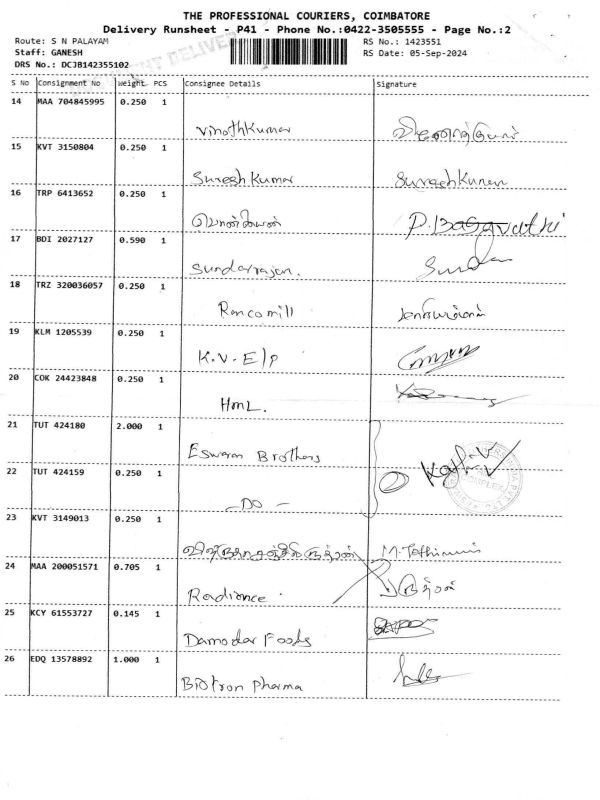 THE PROFESSIONAL COURIERS, COIMBATORE
Delivery Runsheet - P41 - Phone No.:0422-3505555 - Page No.:2
Route: S N PALAYAM RS No.: 1423551
Staff: GANESH RS Date: 05-Sep-2024
DRS No.: DCJB142355102
S No Consignment No Weight PCS Consignee Details Signature
14 MAA 704845995 0.250 1
Vinothkumar
15 KVT 3150804 0.250 1
Suresh Kumar Sureshkumar
16 TRP 6413652 0.250 1
P. Bagavathi
17 BDI 2027127 0.590 1
Sundarrajan. Sundar
18 TRZ 320036057 0.250 1
Rancomill
19 KLM 1205539 0.250 1
K.V. E/P
20 COK 24423848 0.250 1
HML.
21 TUT 424180 2.000 1
Eswaran Brothers
22 TUT 424159 0.250 1
- DO -
23 KVT 3149013 0.250 1
24 MAA 200051571 0.705 1
Radiance.
25 KCY 61553727 0.145 1
Damodar Foods
26 EDQ 13578892 1.000 1
Biotron Pharma